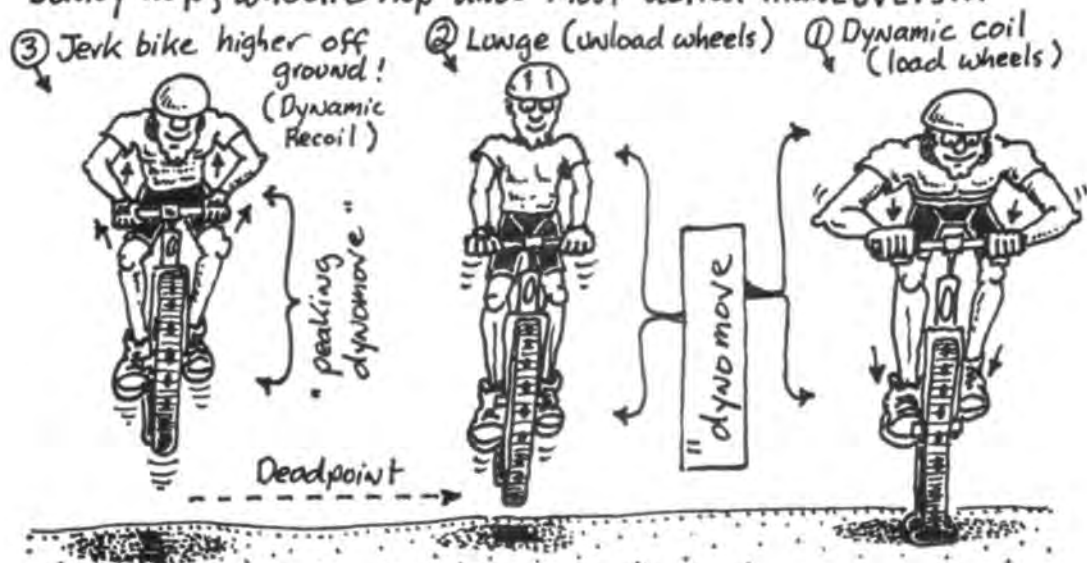 ③ Jerk bike higher off
ground!
(Dynamic
Recoil)
② Lunge (unload wheels)
① Dynamic coil
(load wheels)
"peaking
dynomove"
"dynomove"
Deadpoint